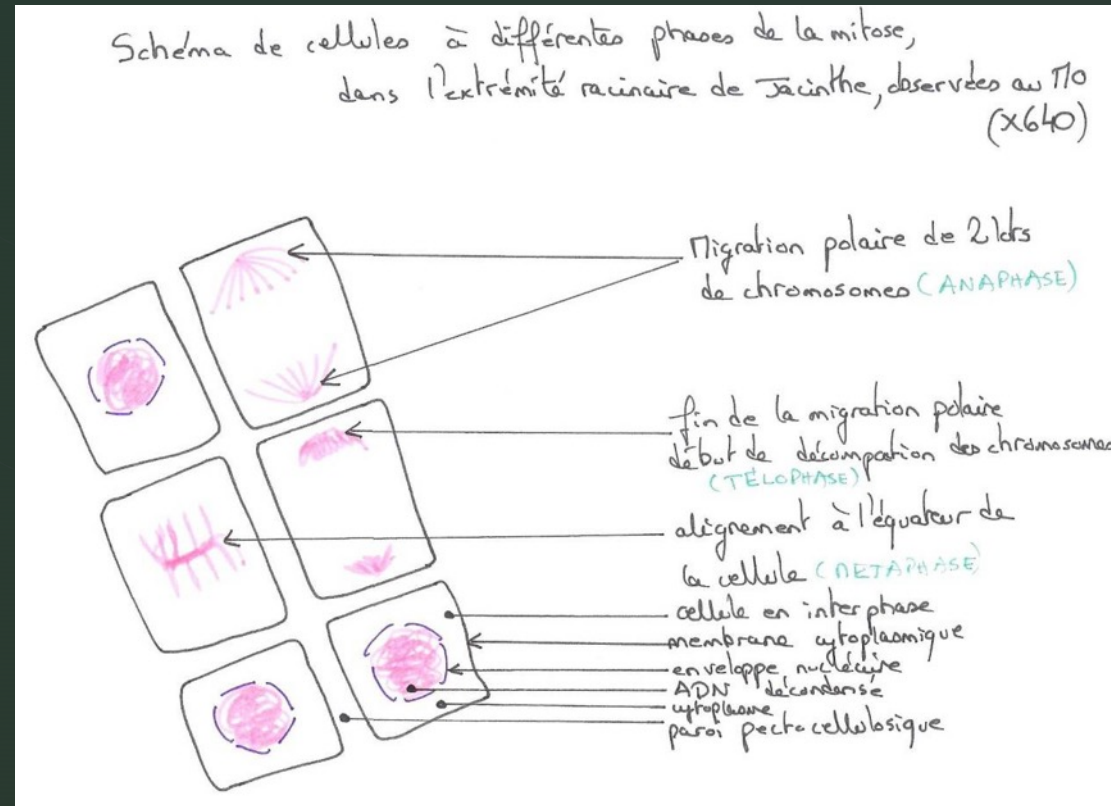 Schéma de cellules à différentes phases de la mitose,
dans l'extrémité racinaire de Jacinthe, observées au MO
(x640)
Migration polaire de 2 lots
de chromosomes (ANAPHASE)
fin de la migration polaire
début de décompation des chromosomes
(TÉLOPHASE)
alignement à l'équateur de
la cellule (METAPHASE)
cellule en interphase
membrane cytoplasmique
enveloppe nucléaire
ADN décondensé
cytoplasme
paroi pectocellulosique